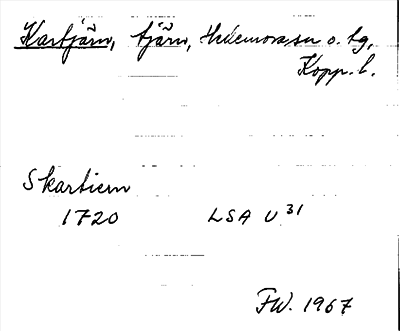 Kartjärn, tjärn, Hedemora sn o. tg,
Kopp. l.
Skartiern
1720 LSA U 31
FW. 1967